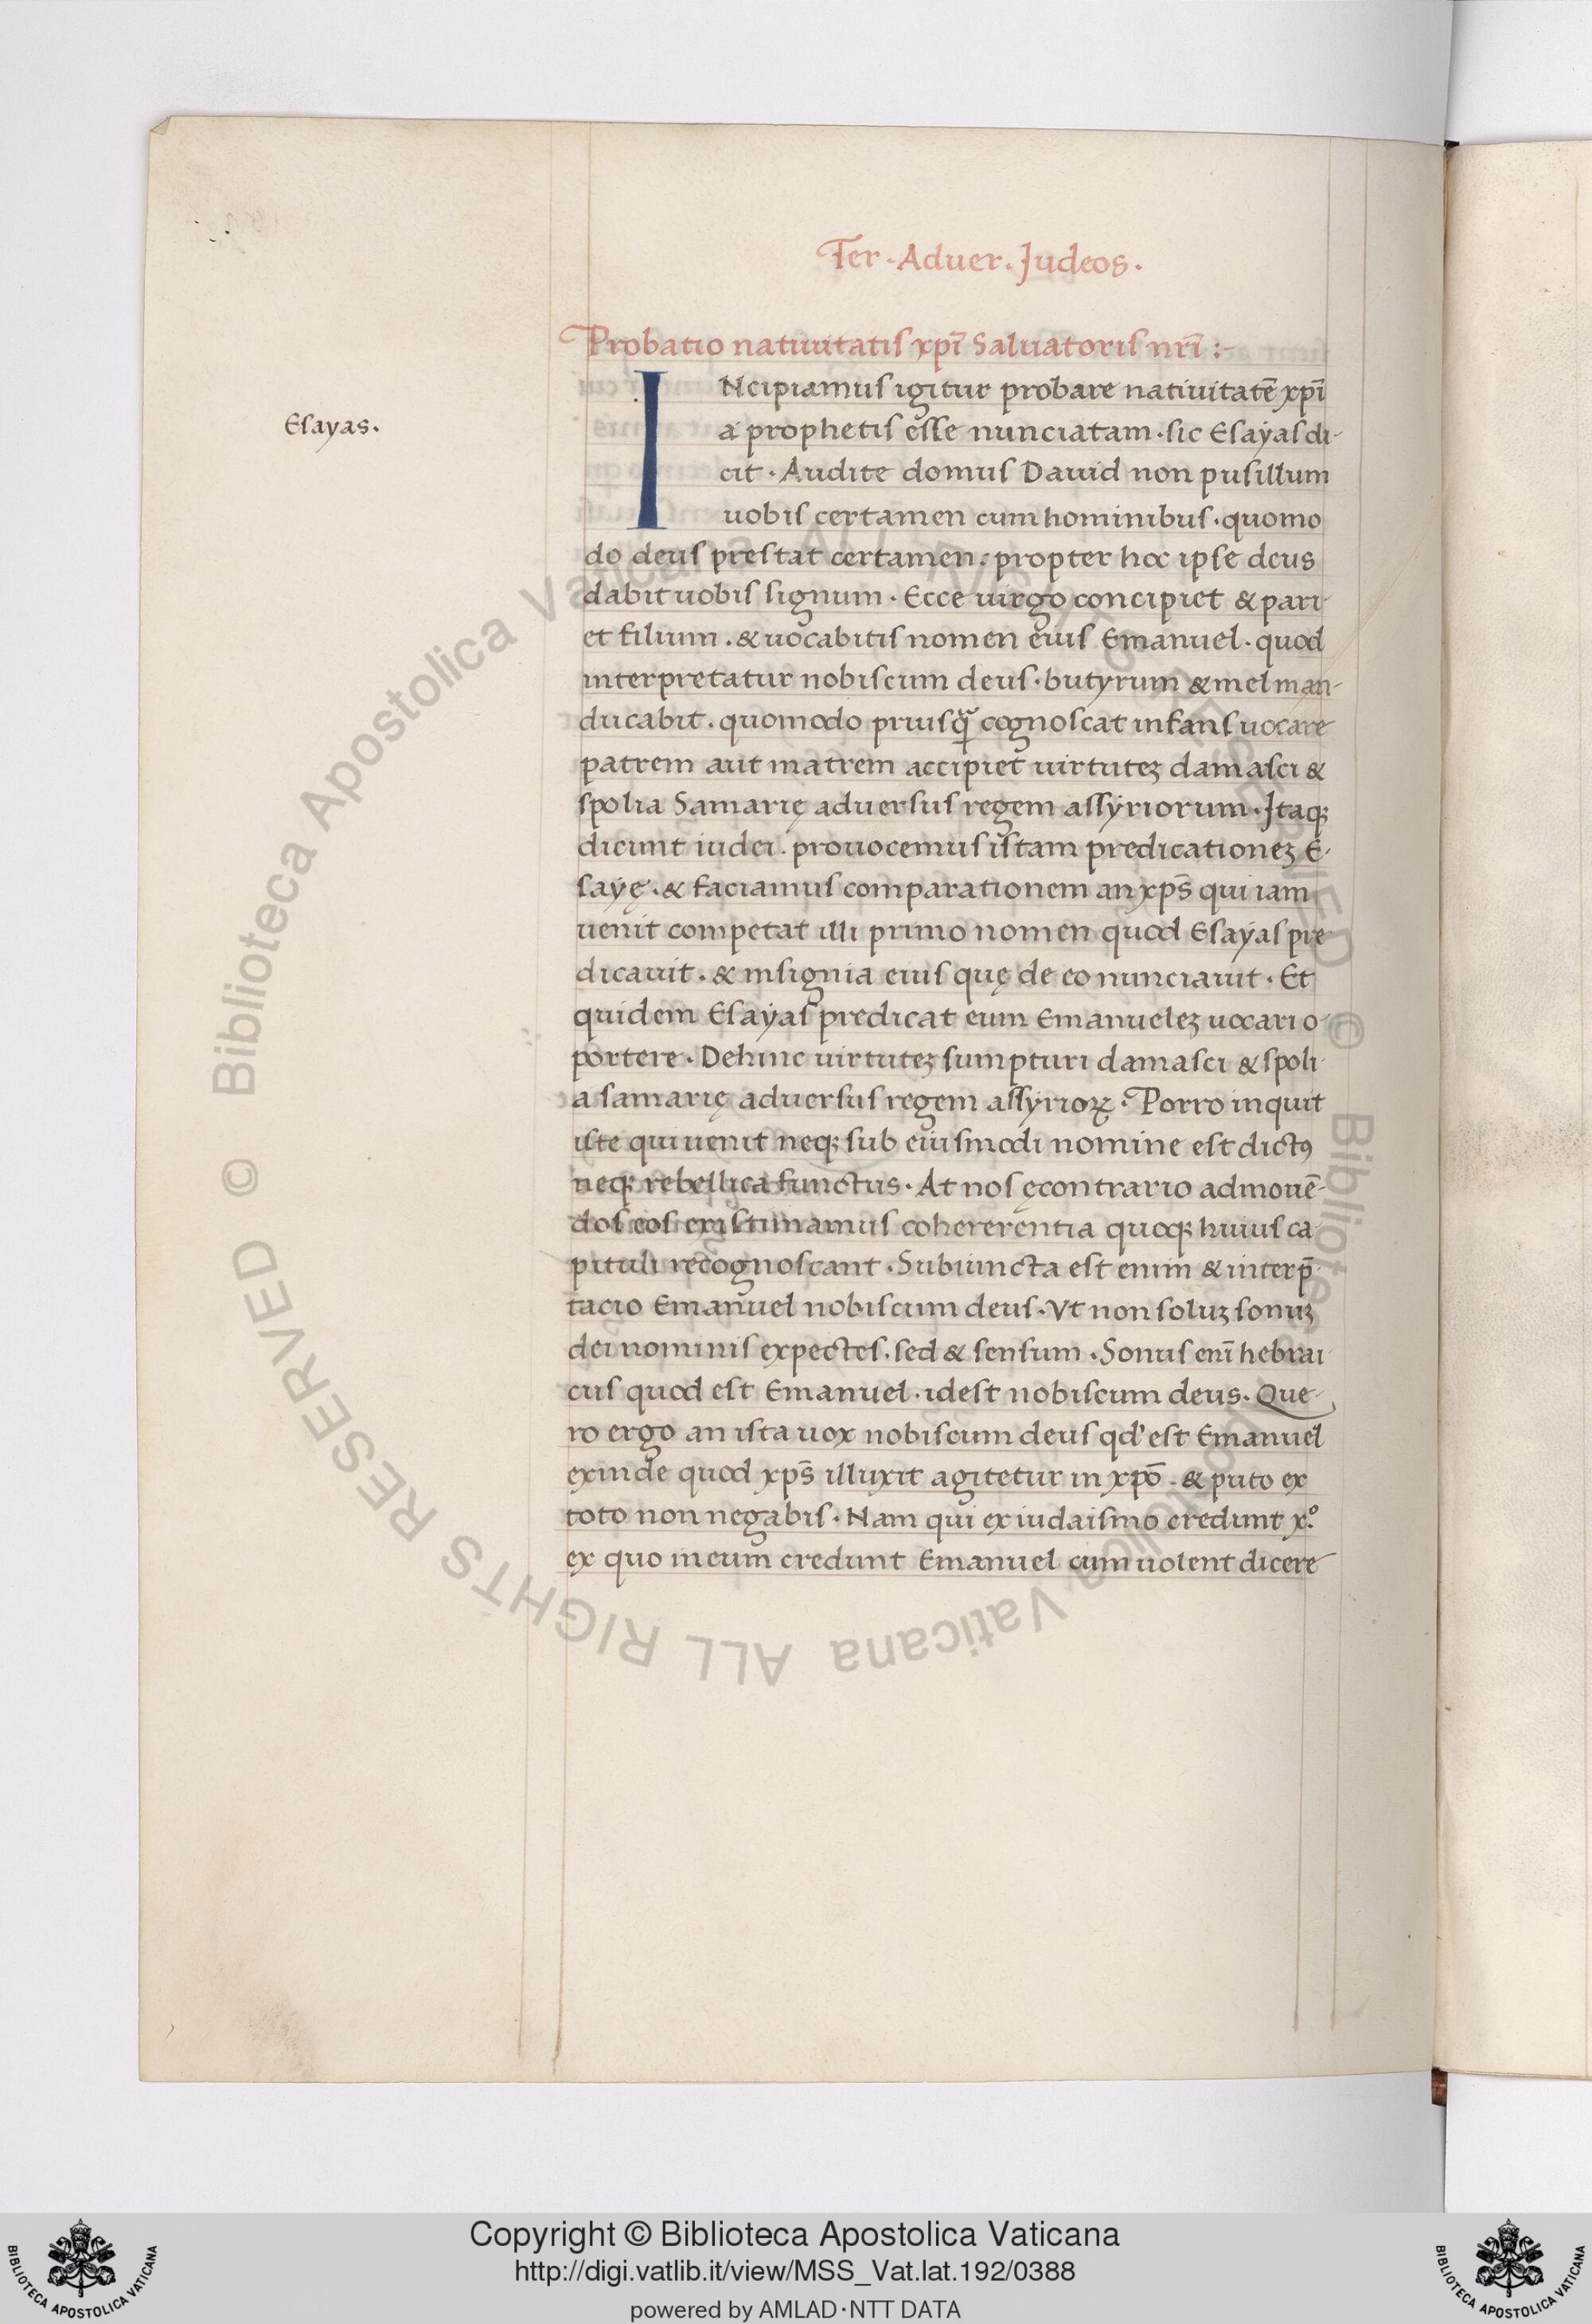 Ter · Aduer · Judeos ·
Probatio natiuitatis xp̄i Saluatoris nr̄i :-
Esayas.
INcipiamus igitur probare natiuitatē xp̄i
a prophetis esse nunciatam · sic Esayas di-
cit · Audite domus Dauid non pusillum
uobis certamen cum hominibus · quomo
do deus prestat certamen · propter hoc ipse deus
dabit uobis signum · Ecce uirgo concipiet & pari-
et filium · & uocabitis nomen eius Emanuel · quod
interpretatur nobiscum deus · butyrum & mel man-
ducabit · quomodo priusq̃ cognoscat infans uocare
patrem aut matrem accipiet uirtuteꝫ damasci &
spolia Samarię aduersus regem assyriorum · Itaqꝫ
dicunt iudei · prouocemus istam predicationeꝫ E-
sayę · & faciamus comparationem an xp̄s qui iam
uenit competat illi primo nomen quod Esayas pre
dicauit · & insignia eius quę de eo nunciauit · Et
quidem Esayas predicat eum Emanueleꝫ uocari o-
portere · Dehinc uirtuteꝫ sumpturi damasci & spoli-
a samarię aduersus regem assyrioꝝ · Porro inquit
iste qui uenit neqꝫ sub eiusmodi nomine est dictꝰ
neqꝫ rebellica functus · At nos ęcontrario admonē-
dos eos existimamus cohererentia quoqꝫ huius ca-
pituli recognoscant · Subiuncta est enim & interp̄-
tacio Emanuel nobiscum deus · Vt non soluꝫ sonuꝫ
dei nominis expectes · sed & sensum · Sonus eni̅ hebrai-
cus quod est Emanuel · idest nobiscum deus · Que-
ro ergo an ista uox nobiscum deus qd' est Emanuel
exinde quod xp̄s illuxit agitetur in xp̄o · & puto ex
toto non negabis · Nam qui ex iudaismo credunt x.º
ex quo in eum credunt Emanuel cum uolent dicere
© Biblioteca Apostolica Vaticana ALL RIGHTS RESERVED
© Biblioteca Apostolica Vaticana ALL RIGHTS RESERVED
Copyright © Biblioteca Apostolica Vaticana
http://digi.vatlib.it/view/MSS_Vat.lat.192/0388
powered by AMLAD·NTT DATA
BIBLIOTECA APOSTOLICA VATICANA
BIBLIOTECA APOSTOLICA VATICANA